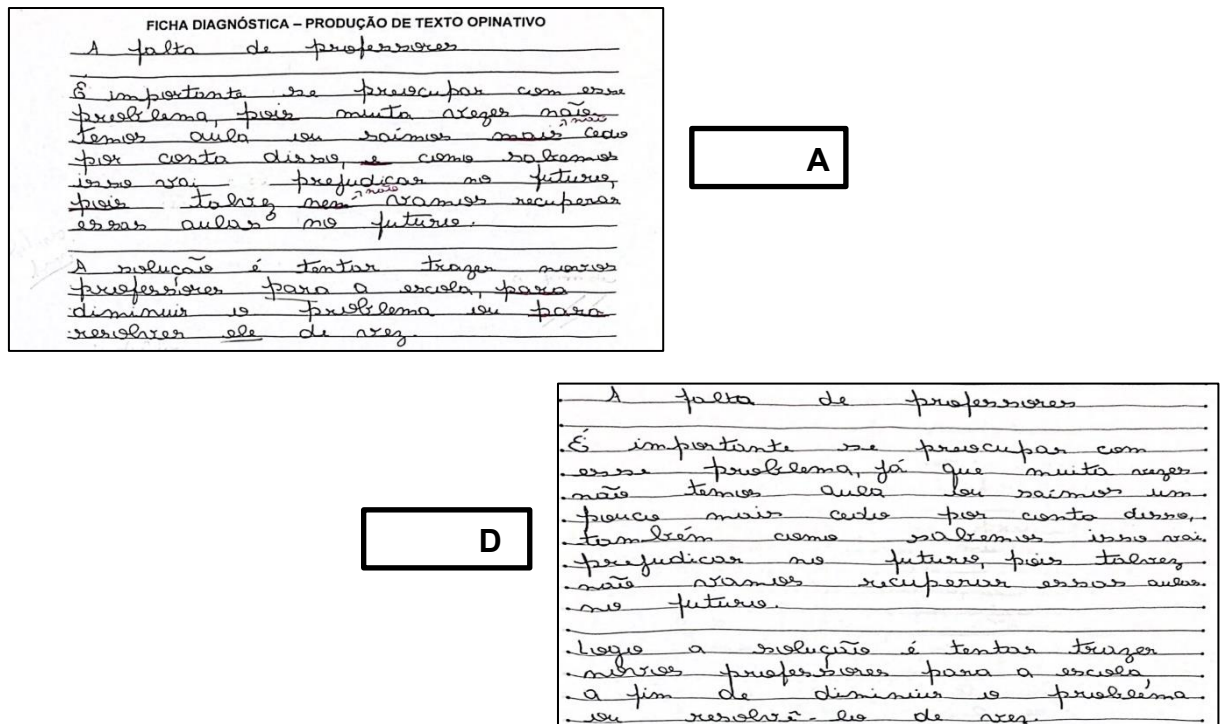 FICHA DIAGNÓSTICA – PRODUÇÃO DE TEXTO OPINATIVO
A falta de professores
É importante se preocupar com esse
problema, pois muita vezes não
temos aula ou saímos mais cedo
por conta disso, e como sabemos
isso vai prejudicar no futuro,
pois talvez nem vamos recuperar
essas aulas no futuro.
A solução é tentar trazer novos
professores para a escola, para
diminuir o problema ou para
resolver ele de vez.
A
A falta de professores
É importante se preocupar com
esse problema, já que muita vezes
não temos aula ou saímos um
pouco mais cedo por conta disso,
também como sabemos isso vai
prejudicar no futuro, pois talvez
não vamos recuperar essas aulas
no futuro.
Logo a solução é tentar trazer
novos professores para a escola,
a fim de diminuir o problema
ou resolvê-lo de vez.
D